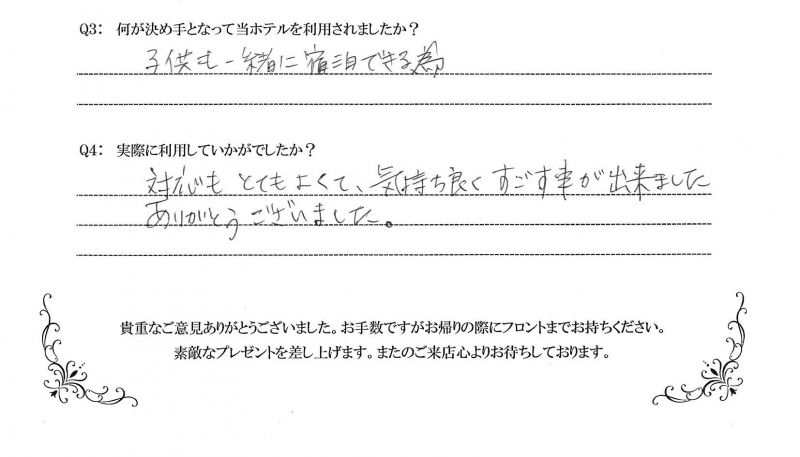 Q3: 何が決め手となって当ホテルを利用されましたか？
子供も一緒に宿泊できる為
Q4: 実際に利用していかがでしたか？
対応もとてもよくて、気持ち良くすごす事が出来ました
ありがとうございました。
貴重なご意見ありがとうございました。お手数ですがお帰りの際にフロントまでお持ちください。
素敵なプレゼントを差し上げます。またのご来店心よりお待ちしております。